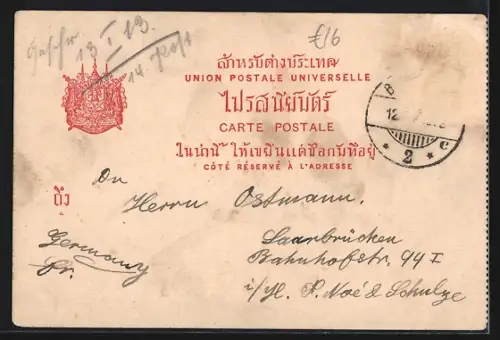 13. I 13.
14.
£16
สำหรับต่างประเทศ
UNION POSTALE UNIVERSELLE
ไปรสนียบัตร์
CARTE POSTALE
ในน่านี้ ให้เขียนแต่ชื่อกับที่อยู่
CÔTÉ RÉSERVÉ À L'ADRESSE
12
* 2 * c
ถึง
An
Herrn Ostmann.
Saarbrücken
Bahnhofstr. 99 I
Germany
Fr.
P. Noé & Schulze